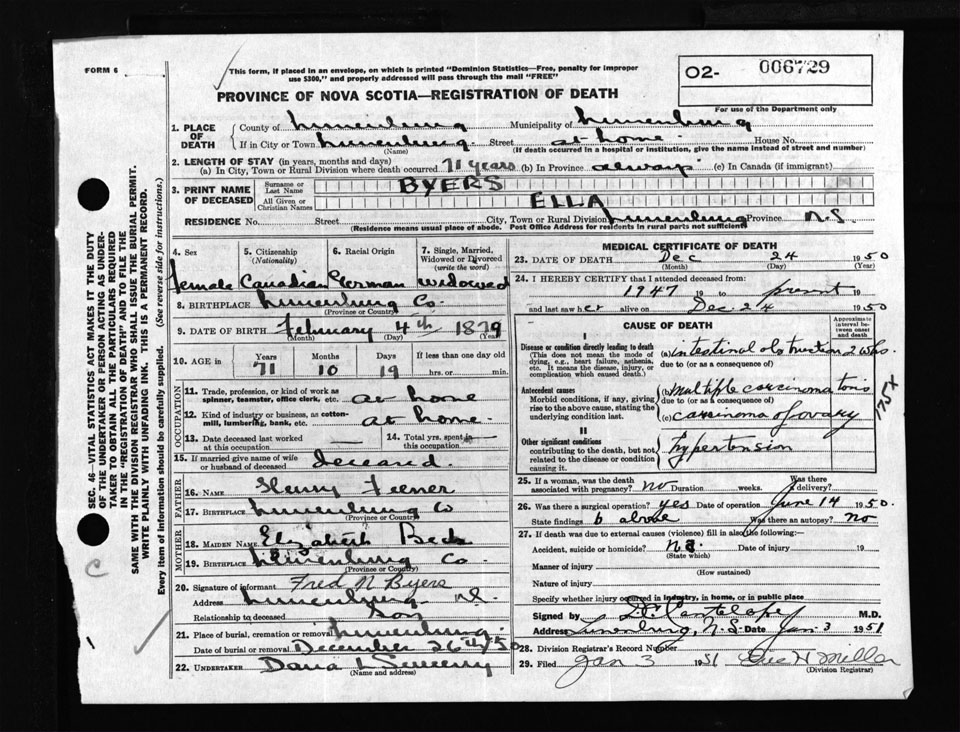 FORM 6
This form, if placed in an envelope, on which is printed "Dominion Statistics—Free, penalty for improper
use $300," and properly addressed will pass through the mail "FREE"
O2- 006729
For use of the Department only
PROVINCE OF NOVA SCOTIA—REGISTRATION OF DEATH
1. PLACE OF DEATH
County of Lunenburg Municipality of Lunenburg
If in City or Town Lunenburg Street at home House No.
(Name) (If death occurred in a hospital or institution, give the name instead of street and number)
2. LENGTH OF STAY (in years, months and days)
(a) In City, Town or Rural Division where death occurred 71 years (b) In Province always (c) In Canada (if immigrant)
3. PRINT NAME OF DECEASED
Surname or Last Name BYERS
All Given or Christian Names ELLA
RESIDENCE No. Street City, Town or Rural Division Lunenburg Province N.S.
(Residence means usual place of abode. Post Office Address for residents in rural parts not sufficient)
4. Sex 5. Citizenship (Nationality) 6. Racial Origin 7. Single, Married, Widowed or Divorced (write the word)
female Canadian German widowed
8. BIRTHPLACE Lunenburg Co.
(Province or Country)
9. DATE OF BIRTH February 4th 1879
(Month) (Day) (Year)
10. AGE in Years Months Days If less than one day old
71 10 19 hrs. or min.
OCCUPATION
11. Trade, profession, or kind of work as spinner, teamster, office clerk, etc. at home
12. Kind of industry or business, as cotton-mill, lumbering, bank, etc. at home
13. Date deceased last worked at this occupation — 14. Total yrs. spent in this occupation —
15. If married give name of wife or husband of deceased deceased.
FATHER
16. NAME Henry Feener
17. BIRTHPLACE Lunenburg Co
(Province or Country)
MOTHER
18. MAIDEN NAME Elizabeth Beck
19. BIRTHPLACE Lunenburg Co.
(Province or Country)
20. Signature of informant Fred N Byers
Address Lunenburg N.S.
Relationship to deceased Son
21. Place of burial, cremation or removal Lunenburg
Date of burial or removal December 26th/50
22. UNDERTAKER
(Name and address)
MEDICAL CERTIFICATE OF DEATH
23. DATE OF DEATH Dec 24 1950
(Month) (Day) (Year)
24. I HEREBY CERTIFY that I attended deceased from:
1947 19 to present 19
and last saw her alive on Dec 24 1950
CAUSE OF DEATH
Approximate interval between onset and death
I
Disease or condition directly leading to death
(This does not mean the mode of dying, e.g., heart failure, asthenia, etc. It means the disease, injury, or complication which caused death.)
(a) intestinal obstruction 2 wks.
due to (or as a consequence of)
Antecedent causes
Morbid conditions, if any, giving rise to the above cause, stating the underlying condition last.
(b) multiple carcinomatosis
due to (or as a consequence of)
(c) carcinoma of ovary
175X
II
Other significant conditions contributing to the death, but not related to the disease or condition causing it.
hypertension
25. If a woman, was the death associated with pregnancy? no Duration weeks. Was there a delivery?
26. Was there a surgical operation? yes Date of operation June 14 1950.
State findings b above Was there an autopsy? No
27. If death was due to external causes (violence) fill in also the following:—
Accident, suicide or homicide? no Date of injury 19
(State which)
Manner of injury
(How sustained)
Nature of injury
Specify whether injury occurred in industry, in home, or in public place
Signed by M.D.
Address Lunenburg, N.S. Date Jan 3 1951
28. Division Registrar's Record Number
29. Filed Jan 3 1951 Miller
(Division Registrar)
SEC. 46—VITAL STATISTICS ACT MAKES IT THE DUTY
OF THE UNDERTAKER OR PERSON ACTING AS UNDER-
TAKER TO OBTAIN ALL THE PARTICULARS REQUIRED
IN THE "REGISTRATION OF DEATH" AND TO FILE THE
SAME WITH THE DIVISION REGISTRAR WHO SHALL ISSUE THE BURIAL PERMIT.
WRITE PLAINLY WITH UNFADING INK. THIS IS A PERMANENT RECORD.
Every item of information should be carefully supplied. (See reverse side for instructions.)
C